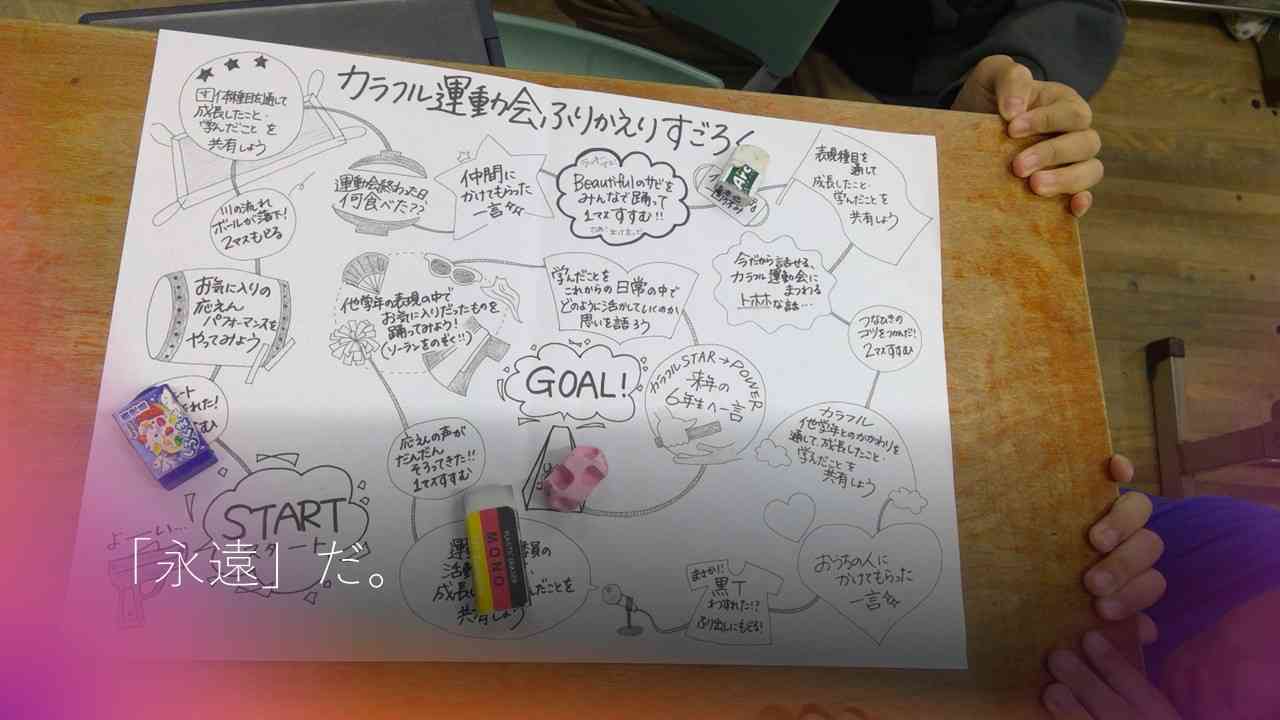 カラフル運動会ふりかえりすごろく
団体種目を通して
成長したこと・
学んだこと を
共有しよう
川の流れ
ボールが落下!
2マスもどる
運動会終わった日、
何食べた??
仲間に
かけてもらった
一言
Beautifulのサビを
みんなで踊って
1マスすすむ!!
表現種目を
通して
成長したこと・
学んだことを
共有しよう
お気に入りの
応えん
パフォーマンスを
やってみよう
他学年の表現の中で
お気に入りだったものを
踊ってみよう!
(ソーランをのぞく!!)
学んだことを
これからの日常の中で
どのように活かしていくのか
思いを語ろう
今だから話せる、
カラフル運動会に
まつわる
トホホな話…
つなひきの
コツをつかんだ!
2マスすすむ
GOAL!
カラフルSTAR→POWER
来年の
6年生へ一言
カラフル
他学年とのかかわりを
通して、成長したこと・
学んだことを
共有しよう
応えんの声が
だんだん
そろってきた!!
1マスすすむ
START
スタート
よーい…
MONO
共有しよう
まさかの!
黒T
わすれた!?
ふり出しにもどる!
おうちの人に
かけてもらった
一言
「永遠」だ。